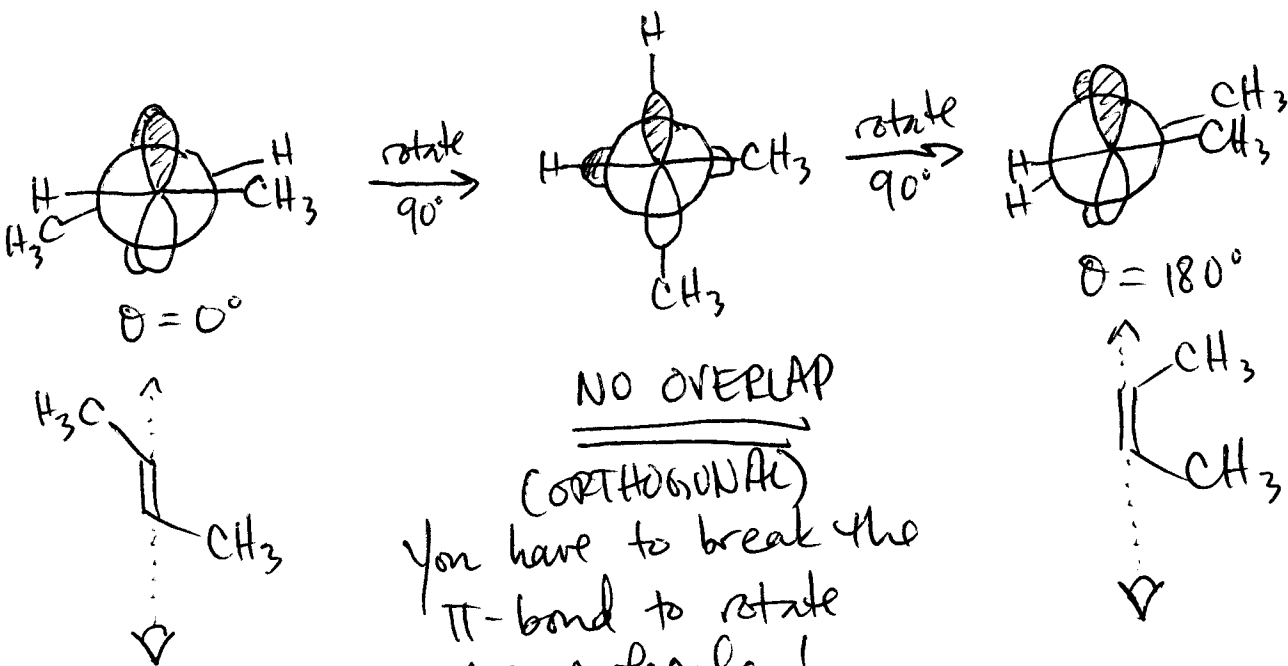 H
H
H₃C
H
CH₃
θ = 0°
rotate
90°
H
H
CH₃
CH₃
rotate
90°
CH₃
CH₃
H
H
θ = 180°
H₃C
CH₃
NO OVERLAP
(ORTHOGONAL)
You have to break the
π-bond to rotate
CH₃
CH₃